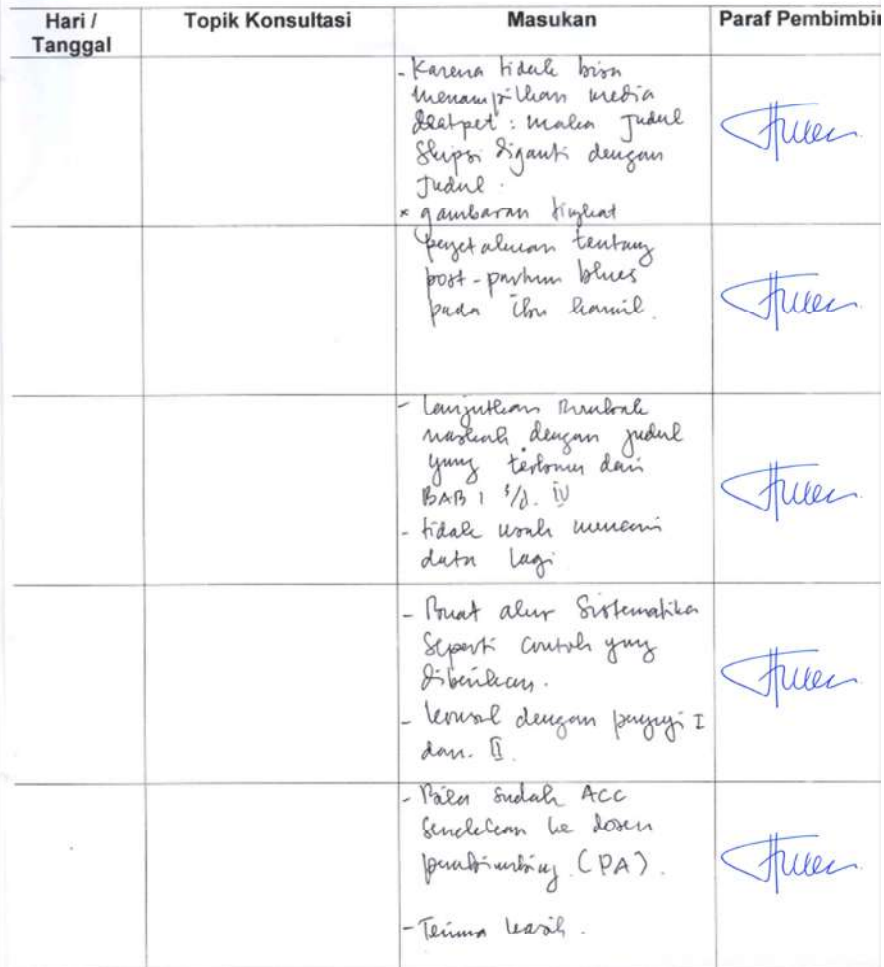 Hari / Tanggal
Topik Konsultasi
Masukan
Paraf Pembimbin
- Karena tidak bisa
menampilkan media
: maka Judul
Skipsi diganti dengan
Judul.
* gambaran tingkat
pengetahuan tentang
post-partum blues
pada ibu hamil.
- Lanjutkan
naskah dengan judul
yang dari
BAB 1 s/d. IV
- tidak usah mencari
data lagi
- Buat alur Sistematika
Seperti contoh yang
diberikan.
- konsul dengan penguji I
dan. II.
- Bila sudah ACC
ke dosen
pembimbing (PA).
- Terima kasih.